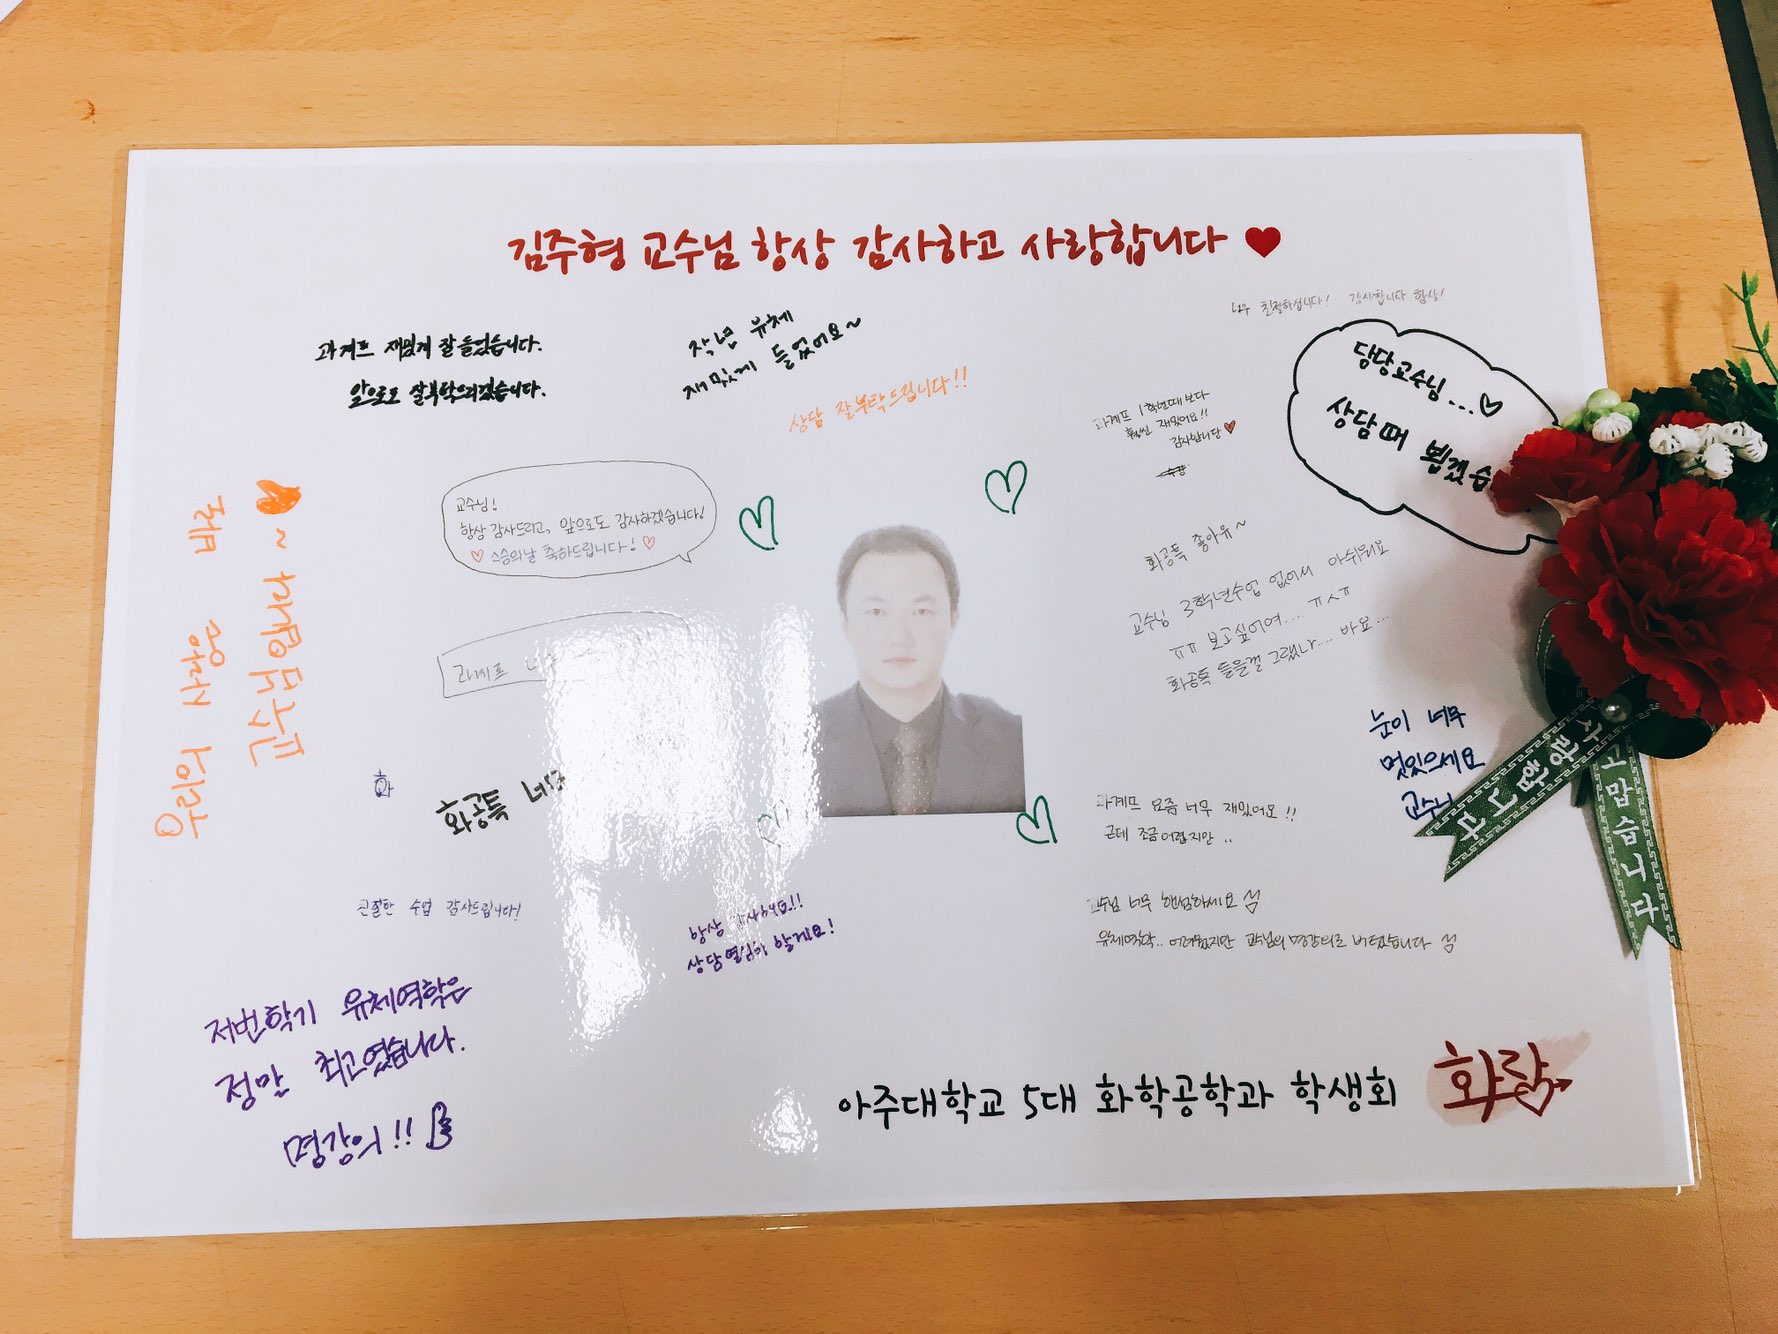 김주형 교수님 항상 감사하고 사랑합니다
너무 친절하십니다! 감사합니다 항상!
과계프 재밌게 잘 들었습니다.
앞으로도 잘부탁드리겠습니다.
작년 유체
재밌게 들었어요~
상담 잘부탁드립니다!!
과계프 1학년때보다
훨씬 재밌어요!!
감사합니당
담당교수님...
상담때 뵙겠습
우리의 사랑은 바로
교수님입니다~
교수님!
항상 감사드리고, 앞으로도 감사하겠습니다!
스승의날 축하드립니다!
화공특 좋아유~
교수님 3학년수업 없어서 아쉬워요
ㅠㅠ 보고싶어여.... ㅠㅅㅠ
화공특 들을껄 그랬나... 바요...
과계프
눈이 너무
멋있으세요
교수니
화
화공특 너무
과계프 요즘 너무 재밌어요!!
근데 조금어렵지만..
친절한 수업 감사드립니다!
항상
상담 열심히 할게요!
교수님 너무
유체역학.. 어려웠지만 교수님의 명강의로 버텼습니다
저번학기 유체역학은
정말 최고였습니다.
명강의!!
아주대학교 5대 화학공학과 학생회
화랑
사랑합니다
고맙습니다